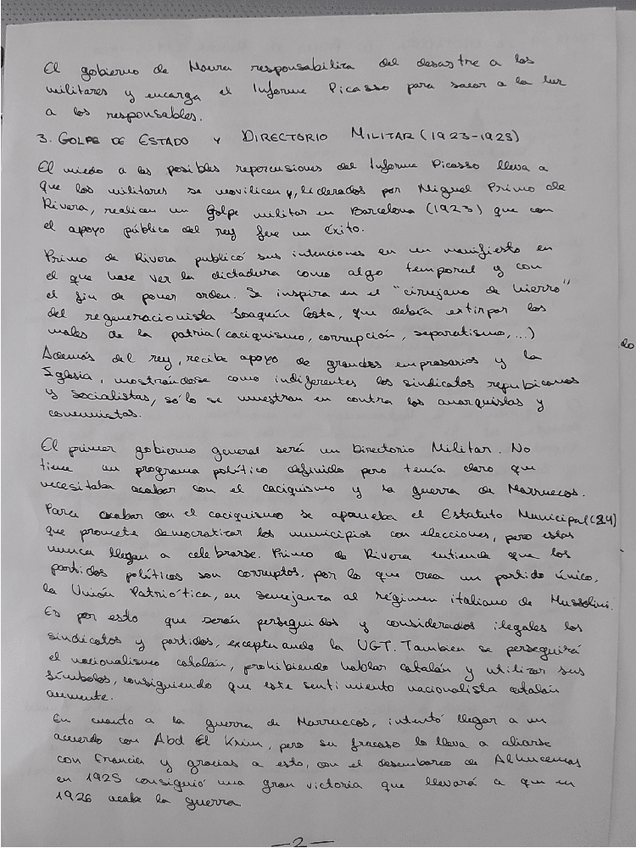 El gobierno de Maura responsabiliza del desastre a los
militares y encarga el Informe Picasso para sacar a la luz
a los responsables.
3. GOLPE DE ESTADO Y DIRECTORIO MILITAR (1923-1925)
El miedo a las posibles repercusiones del Informe Picasso lleva a
que los militares se movilicen y, liderados por Miguel Primo de
Rivera, realicen un Golpe militar en Barcelona (1923) que con
el apoyo público del rey fue un éxito.
Primo de Rivera publicó sus intenciones en un manifiesto en
el que hace ver la dictadura como algo temporal y con
el fin de poner orden. Se inspira en el "cirujano de hierro"
del regeneracionista Joaquín Costa, que debía estirpar los
males de la patria (caciquismo, corrupción, separatismo, ...)
Además del rey, recibe apoyo de grandes empresarios y la
Iglesia, mostrándose como indiferentes los sindicatos republicanos
y socialistas, sólo se muestran en contra los anarquistas y
comunistas.
El primer gobierno general será un Directorio Militar. No
tiene un programa político definido pero tenía claro que
necesitaba acabar con el caciquismo y la guerra de Marruecos.
Para acabar con el caciquismo se aprueba el Estatuto Municipal (24)
que promete democratizar los municipios con elecciones, pero estas
nunca llegan a celebrarse. Primo de Rivera entiende que los
partidos políticos son corruptos, por lo que crea un partido único,
la Unión Patriótica, en semejanza al régimen italiano de Mussolini.
Es por esto que serán perseguidos y considerados ilegales los
sindicatos y partidos, exceptuando la UGT. Tambien se perseguirá
el nacionalismo catalán, prohibiendo hablar catalán y utilizar sus
símbolos, consiguiendo que este sentimiento nacionalista catalán
aumente.
En cuanto a la guerra de Marruecos, intentó llegar a un
acuerdo con Abd El Krim, pero su fracaso lo lleva a aliarse
con Francia y gracias a esto, con el desembarco de Alhucemas
en 1925 consiguió una gran victoria que llevará a que en
1926 acabe la guerra
—2—
do